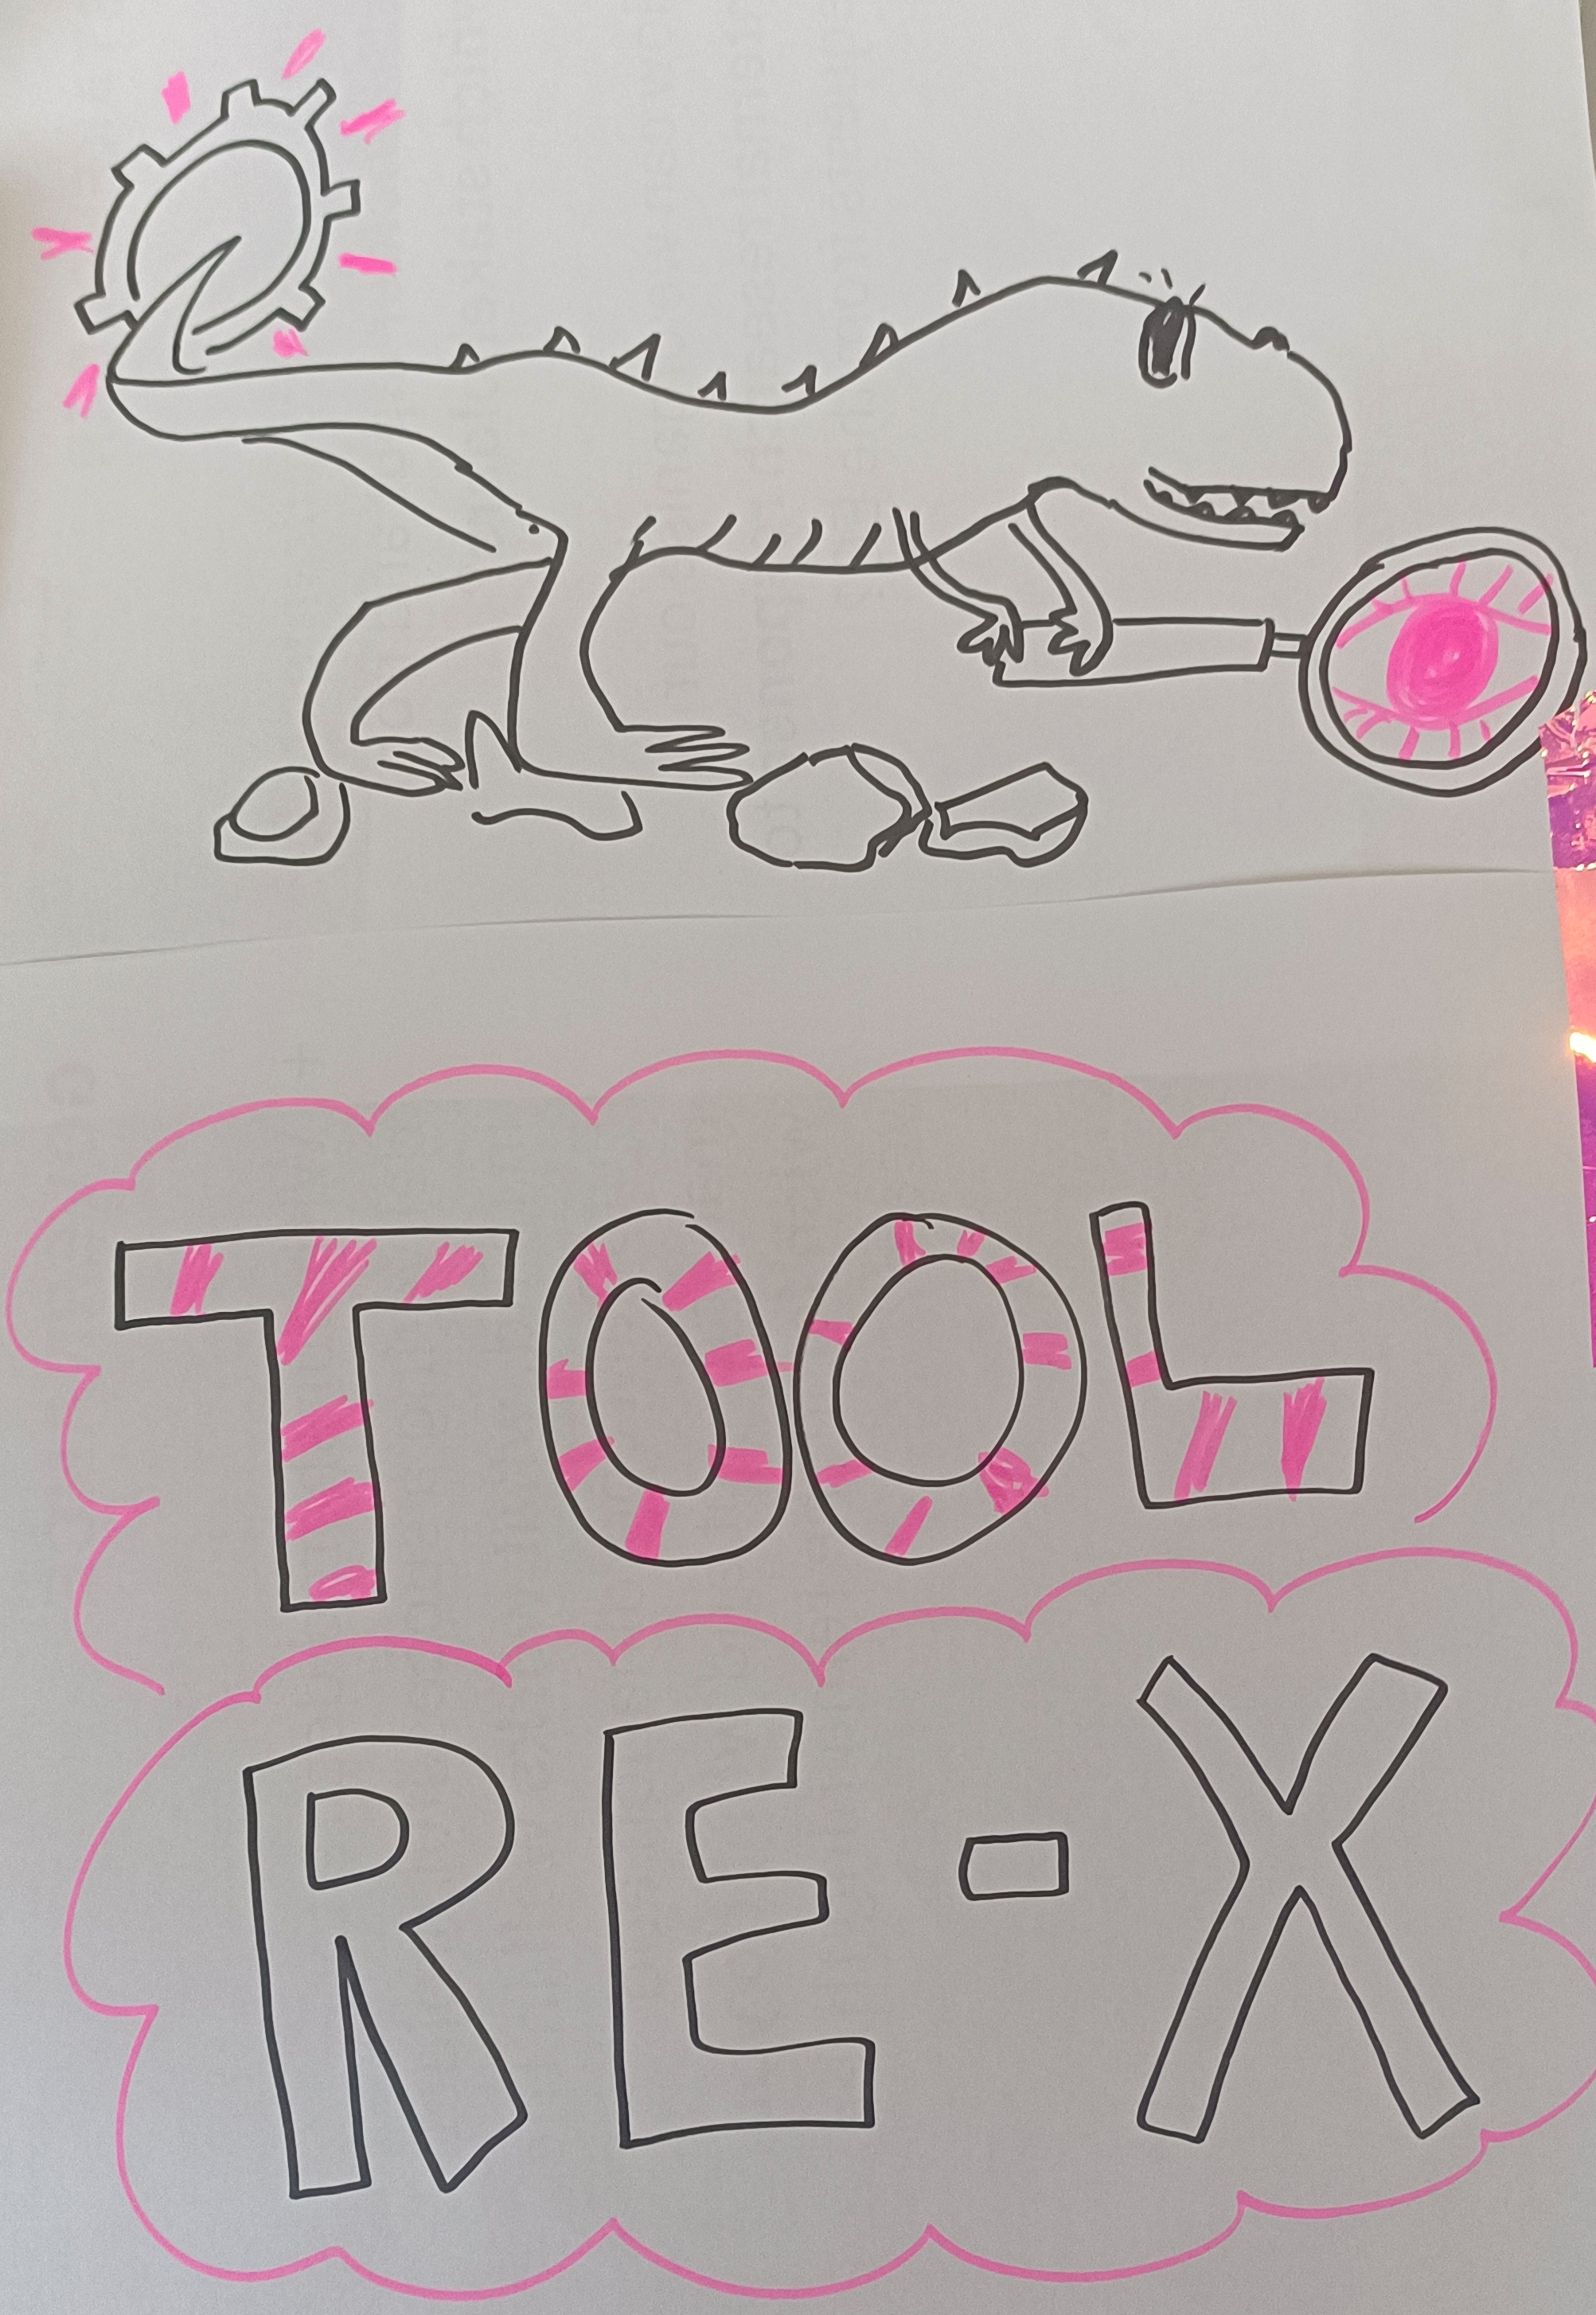 TOOL
RE-X